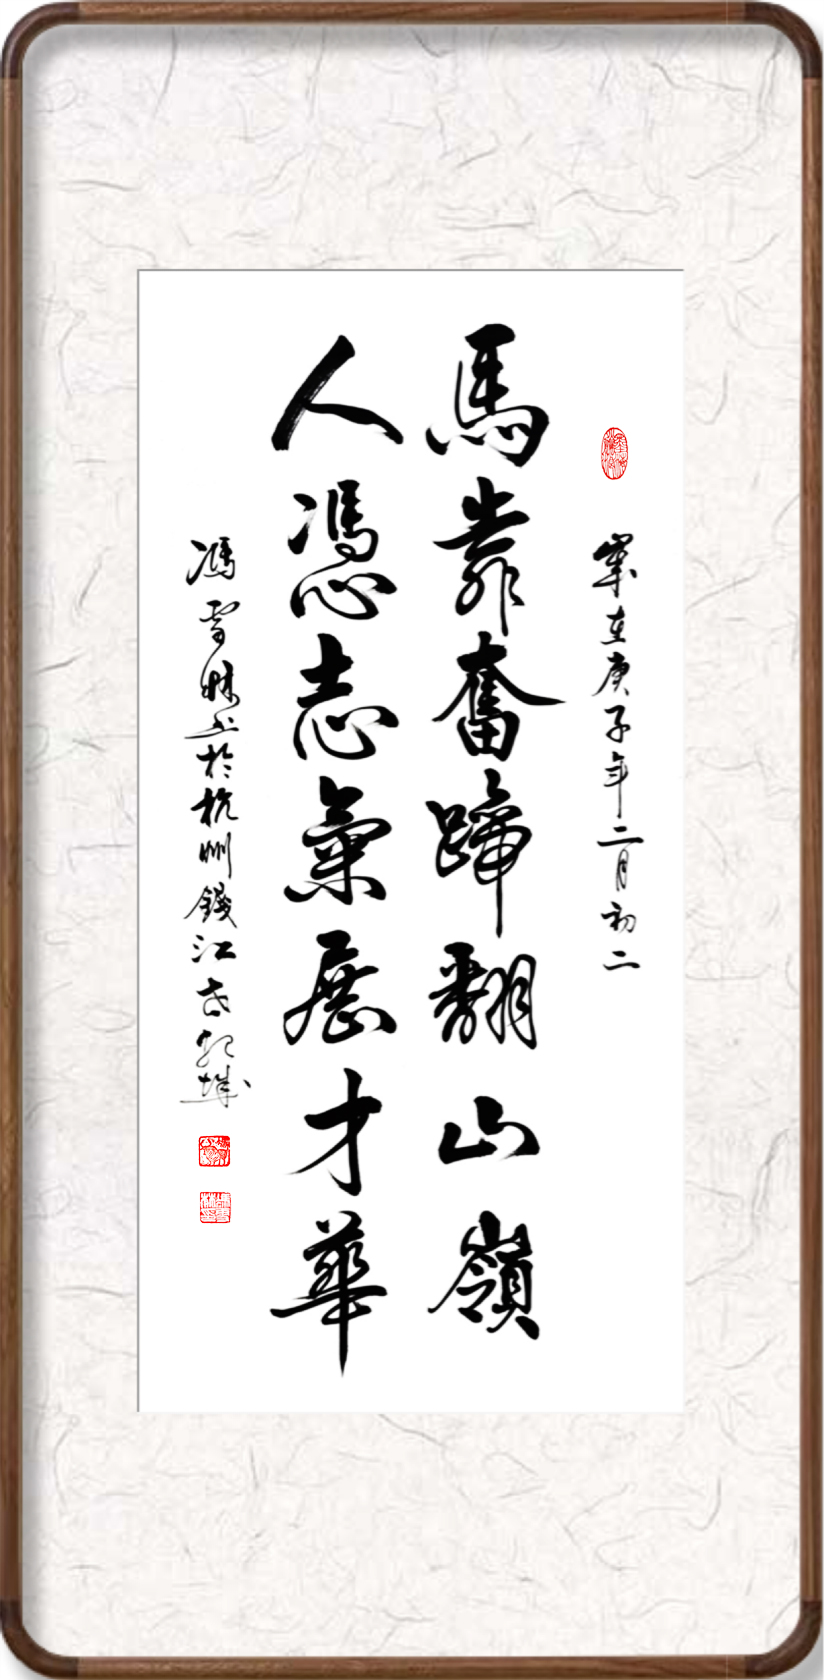 歲在庚子年二月初二
馬靠奮蹄翻山嶺
人馮志氣展才華
馮雪林書於杭州錢江世紀城